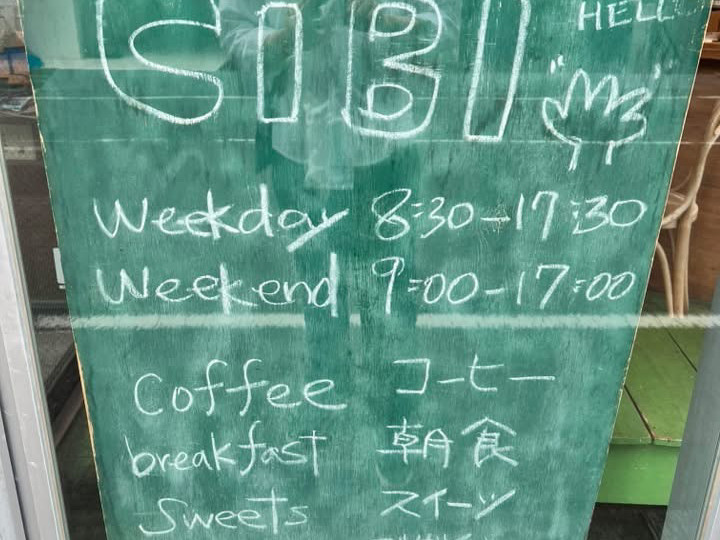 HELLO
SIBI
Weekday 8:30-17:30
Weekend 9:00-17:00
Coffee コーヒー
breakfast 朝食
Sweets スイーツ